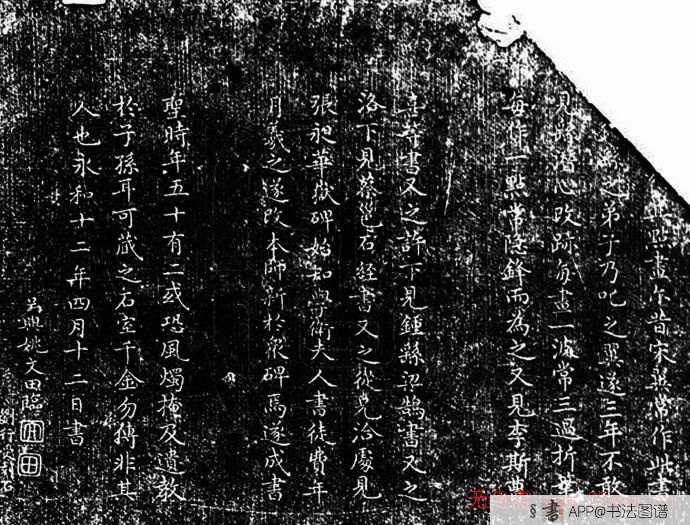 點畫尔昔宋翼常作此書
之弟子乃叱之翼遂三年不敢
見繇潛心改跡每畫一波常三過折筆
每作一點常隱鋒而為之又見李斯曹
喜等書又之許下見鍾繇梁鵠書又之
洛下見蔡邕石經書又之從兄洽處見
張昶華嶽碑始知學衛夫人書徒費年
月羲之遂改本師新於衆碑焉遂成書
聖時年五十有二或恐風燭掩及遺教
於子孫耳可藏之石室千金勿傳非其
人也永和十二年四月十二日書
吳興姚文田臨
書 APP@书法图谱